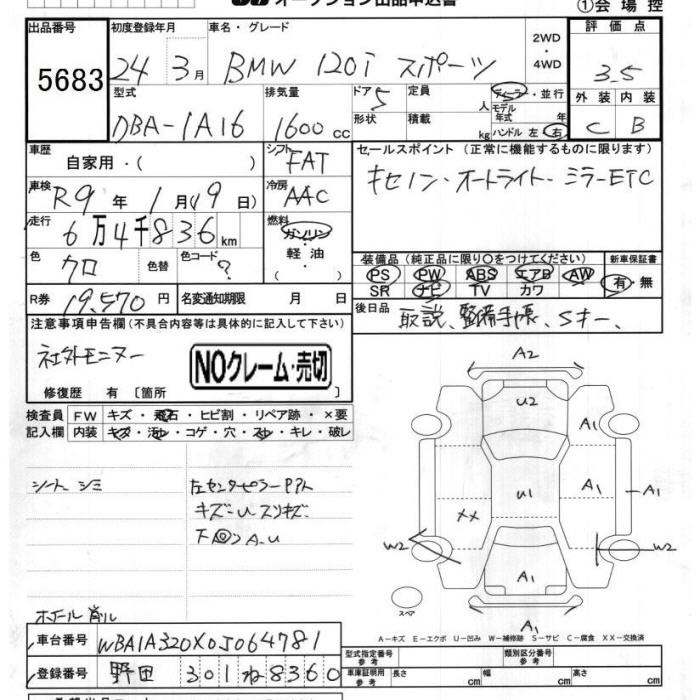 ①会場控
出品番号
5683
初度登録年月
24 3月
車名・グレード
BMW 120i スポーツ
2WD
・
4WD
評価点
3.5
型式
DBA-1A16
排気量
1600cc
ドア 5
形状
定員 人
積載 kg
ディーラー・並行
モデル年式 年
ハンドル 左 右
外装 内装
C B
車歴
自家用・( )
シフト
FAT
セールスポイント(正常に機能するものに限ります)
キセノン・オートライト・ミラーETC
車検
R9年1月(9日)
冷房
AAC
走行
6万4千836km
燃料
ガソリン
軽油
( )
色
クロ
色替
色コード
?
装備品(純正品に限り○をつけてください)
PS PW ABS エアB AW
SR ナビ TV カワ
新車保証書
有・無
R券 19,570円
名変通知期限 月 日
後日品
取説、整備手帳、Sキー、
注意事項申告欄(不具合内容等は具体的に記入して下さい)
社外モニター
NOクレーム・売切
修復歴 有〔箇所
検査員
記入欄
FW キズ・飛石・ヒビ割・リペア跡・×要
内装 キズ・汚れ・コゲ・穴・スレ・キレ・破レ
シート シミ
キズ・U スリキズ
下回り A.U
A2
U2
A1
U1
A1
A1
XX
W2
W2
A1
A1
スペア
A-キズ E-エクボ U-凹み W-補修跡 S-サビ C-腐食 XX-交換済
車台番号 WBA1A320X0J064781
登録番号 野田 301 ね 8360
型式指定番号
参考
類別区分番号
参考
車庫証明用
参考
長さ cm 幅 cm 高さ cm